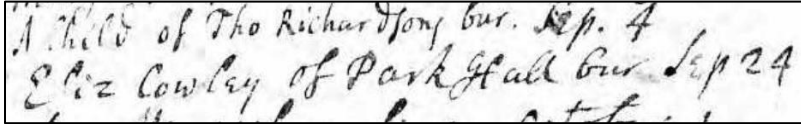 A Child of Tho Richardsons bur. Sep. 4
Eliz Cowley of Park Hall bur Sep 24